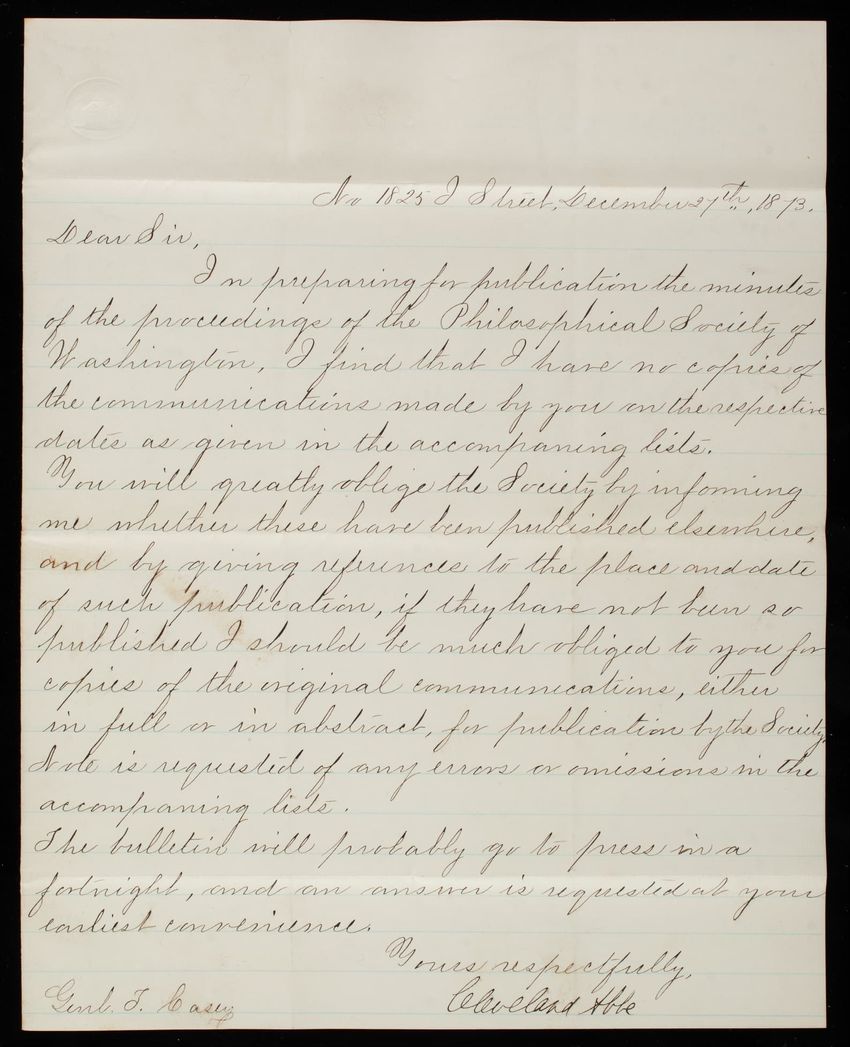 No 1825 I Street, December 27th, 1873.
Dear Sir,
In preparing for publication the minutes
of the proceedings of the Philosophical Society of
Washington, I find that I have no copies of
the communications made by you on the respective
dates as given in the accompaning lists.
You will greatly oblige the Society by informing
me whether these have been published elsewhere,
and by giving references to the place and date
of such publication, if they have not been so
published I should be much obliged to you for
copies of the original communications, either
in full or in abstract, for publication by the Society.
Note is requested of any errors or omissions in the
accompaning lists.
The bulletin will probably go to press in a
fortnight, and an answer is requested at your
earliest convenience.
Yours respectfully,
Genl. T. Casey
Cleveland Abbe